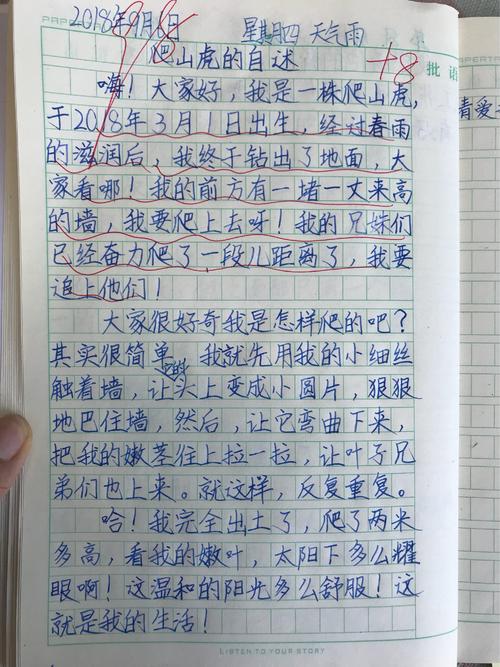 2018年9月6日 星期四 天气雨
爬山虎的自述
+8
批语
嗨！大家好，我是一株爬山虎，
于2018年3月1日出生，经过春雨
的滋润后，我终于钻出了地面，大
家看哪！我的前方有一堵一丈来高
的墙，我要爬上去呀！我的兄妹们
已经奋力爬了一段儿距离了，我要
追上他们！
大家很好奇我是怎样爬的吧？
其实很简单的，我就先用我的小细丝
触着墙，让头上变成小圆片，狠狠
地巴住墙，然后，让它弯曲下来，
把我的嫩茎往上拉一拉，让叶子兄
弟们也上来。就这样，反复重复。
哈！我完全出土了，爬了两米
多高，看我的嫩叶，太阳下多么耀
眼啊！这温和的阳光多么舒服！这
就是我的生活！
LISTEN TO YOUR STORY